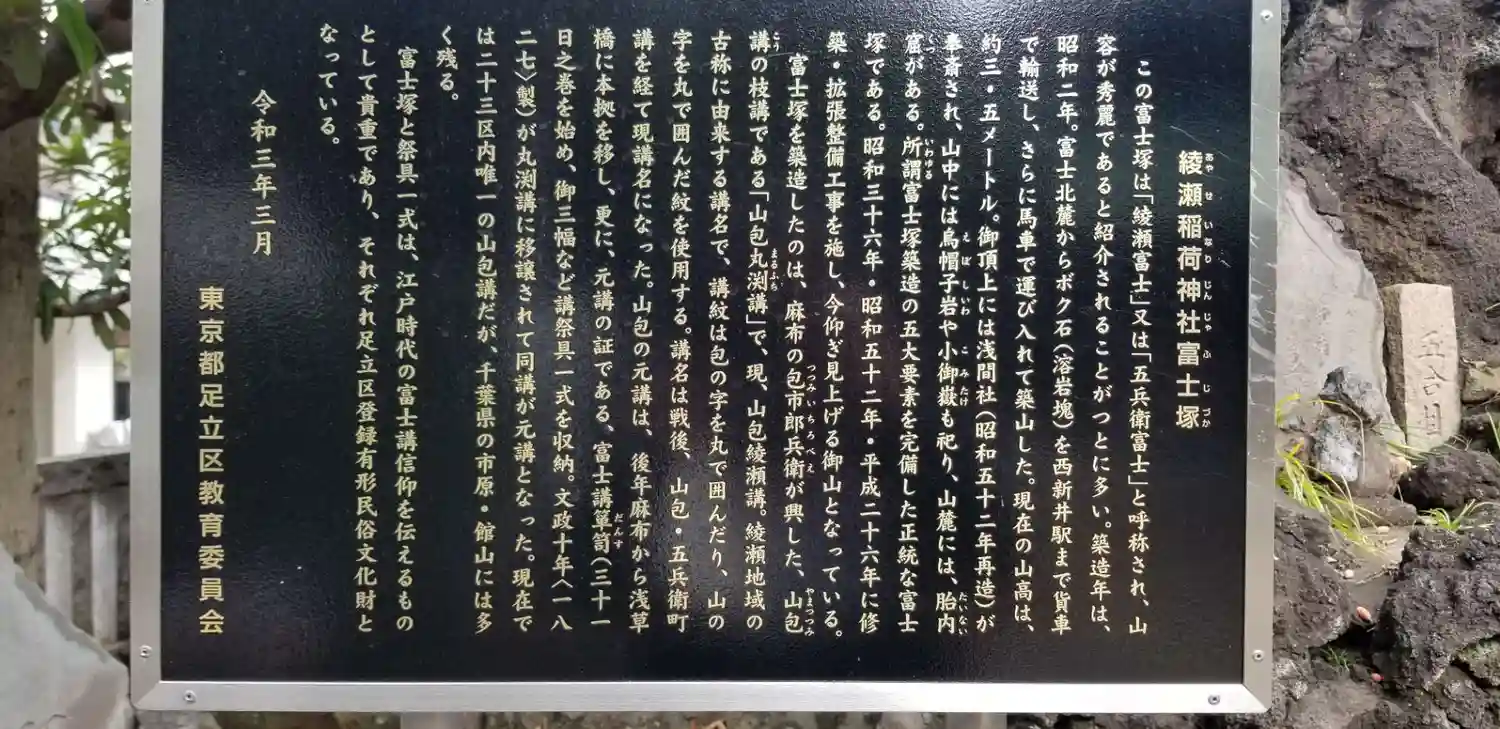 綾瀬稲荷神社富士塚
この富士塚は「綾瀬富士」又は「五兵衛富士」と呼称され、山
容が秀麗であると紹介されることがつとに多い。築造年は、
昭和二年。富士北麓からボク石(溶岩塊)を西新井駅まで貨車
で輸送し、さらに馬車で運び入れて築山した。現在の山高は、
約三・五メートル。御頂上には浅間社(昭和五十二年再造)が
奉斎され、山中には烏帽子岩や小御嶽も祀り、山麓には、胎内
窟がある。所謂富士塚築造の五大要素を完備した正統な富士
塚である。昭和三十六年・昭和五十二年・平成二十六年に修
築・拡張整備工事を施し、今仰ぎ見上げる御山となっている。
富士塚を築造したのは、麻布の包市郎兵衛が興した、山包
講の枝講である「山包丸渕講」で、現、山包綾瀬講。綾瀬地域の
古称に由来する講名で、講紋は包の字を丸で囲んだり、山の
字を丸で囲んだ紋を使用する。講名は戦後、山包・五兵衛町
講を経て現講名になった。山包の元講は、後年麻布から浅草
橋に本拠を移し、更に、元講の証である、富士講箪笥(三十一
日之巻を始め、御三幅など講祭具一式を収納。文政十年〈一八
二七〉製)が丸渕講に移譲されて同講が元講となった。現在で
は二十三区内唯一の山包講だが、千葉県の市原・館山には多
く残る。
富士塚と祭具一式は、江戸時代の富士講信仰を伝えるもの
として貴重であり、それぞれ足立区登録有形民俗文化財と
なっている。
令和三年三月
東京都足立区教育委員会
五合目